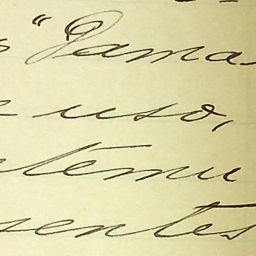 " Dama
uso,
temu
sentes